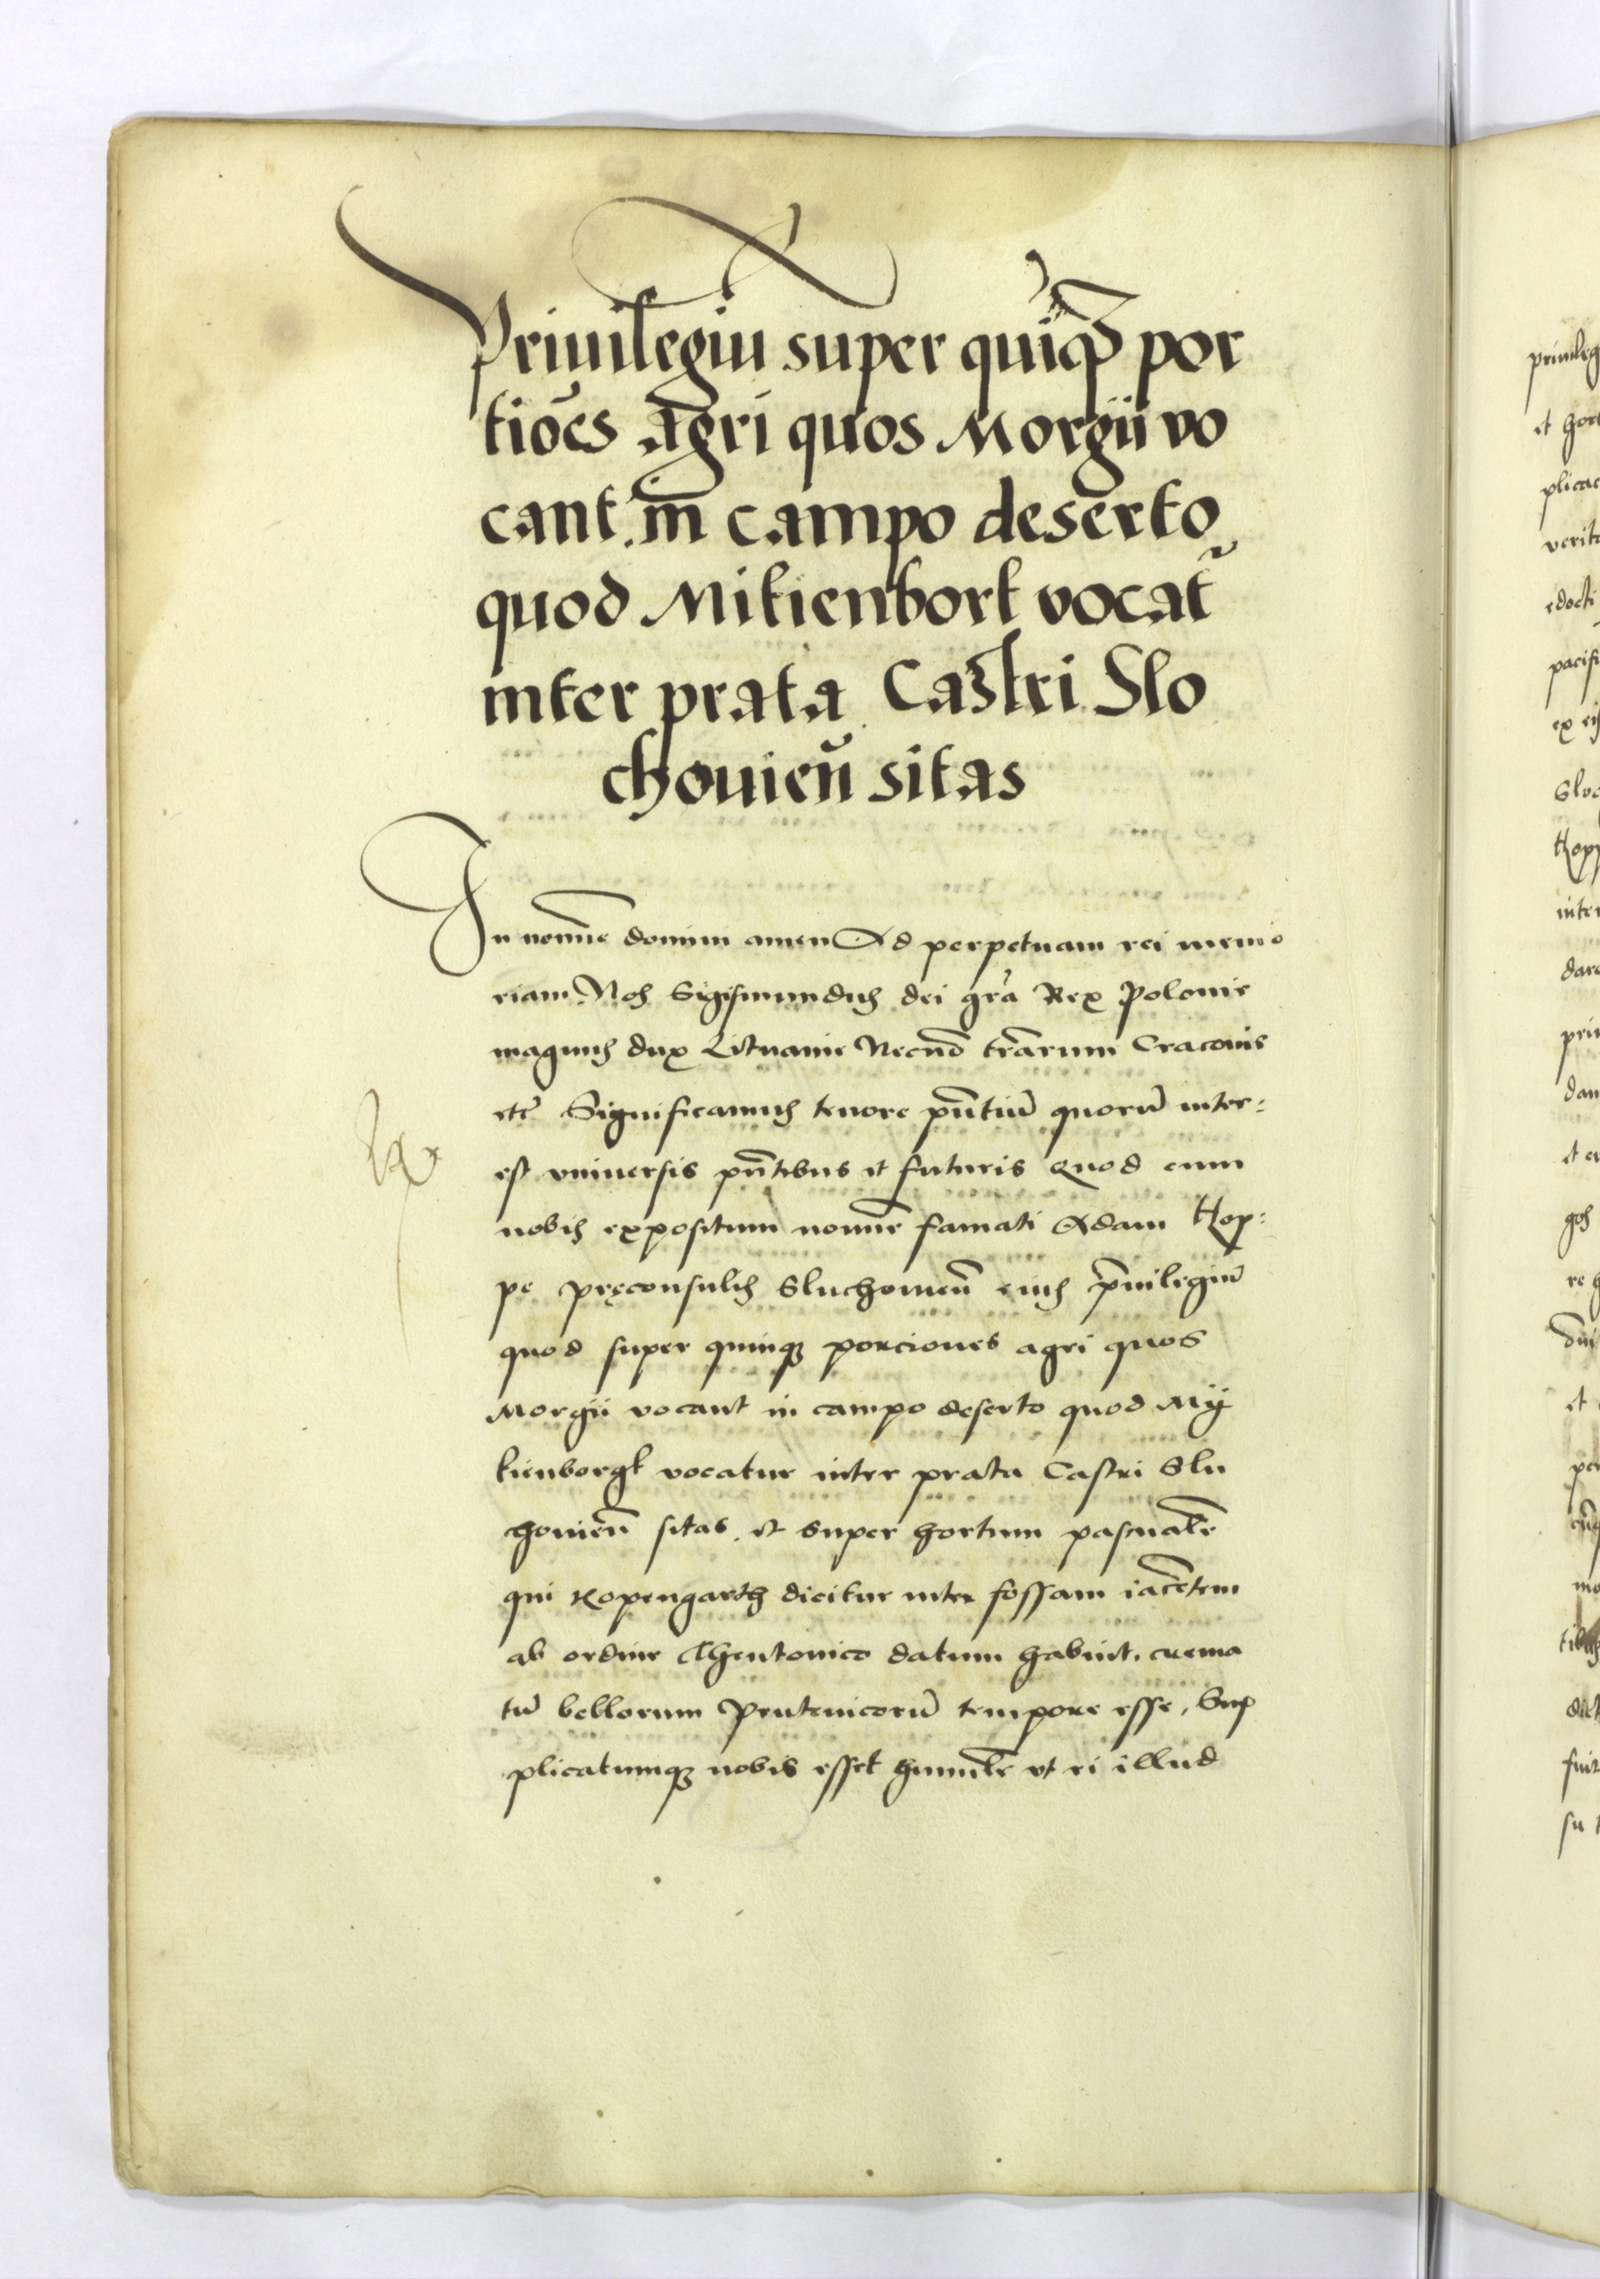 Priuilegiū super quīqȝ por
tiōēs Agri quos Morgii vo
cant in campo deserto
quod Mitienbort vocat̃
inter prata Castri Slo
chouieñ sitas
In noīne domini amen Ad perpetuam rei memo
riam Nos Sigismundus dei grã Rex Polonie
magnus dux Lituanie Necnō trārum Cracouie
etč Significamus tenore pñtiū quorū inter:
est vniuersis pñtibus et futuris Quod cum
nobis expositum noīne famati Adam Kop:
pe pręconsulis Sluchouieñ eius priuilegiū
quod super quinqȝ porciones agri quos
Morgii vocant in campo deserto quod Mÿ
tienborgk vocatur inter prata Castri Slu
chouieñ sitas et super hortum pascualē
qui Kopengarth dicitur inter fossam iacētem
ab ordine Theutonico datum habuit, crema
tū bellorum Prutenicorū tempore esse, Sup
plicatumqȝ nobis esset humilē vt ei illud
priuileg
et hor
plicac
verit
edocti
pacifi
ex ei
Sloc
Kopp
inter
dare
pri
dan
et
gos
re
et
per
mo
fuit
su